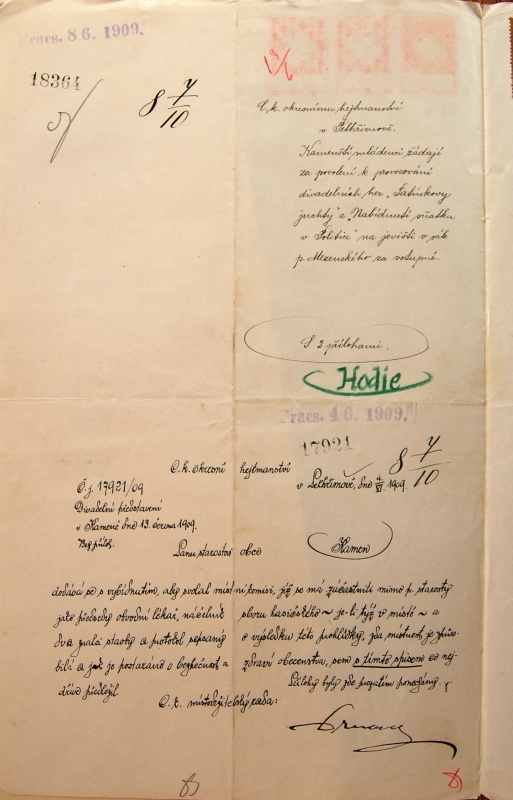 Praes. 8 6. 1909.
18364
8 7/10
C. k. okresnímu hejtmanství
v Pelhřimově.
Kamenští mládenci žádají
za povolení k provozování
divadelních her „Tatínkovy
juchty" a „Nabídnutí sňatku
v Politice" na jevišti v sále
p. Mezenského za vstupné.
S 2 přílohami.
Hodie
Praes. 4 6. 1909.
17921
8 7/10
C. k. okresní hejtmanství
Č. j. 17921/09
v Pelhřimově, dne 4/VI. 1909.
Divadelní představení
v Kamené dne 13. června 1909.
Bez příloh.
Panu starostovi obce Kamen
dodává se s vybídnutím, aby svolal místní komisi, jíž se má zúčastniti mimo p. starosty
jako předsedy obvodní lékař, náčelník sboru hasičského ~ je-li týž v místě ~ a
dva znalci stavby a protokol sepsaný o výsledku této prohlídky, zda místnost je způso-
bilá a jak je postaráno o bezpečnost a zdraví obecenstva, sem s tímto spisem co nej-
dříve předložil.
Přílohy byly zde prozatím ponechány.
C. k. místodržitelský rada: